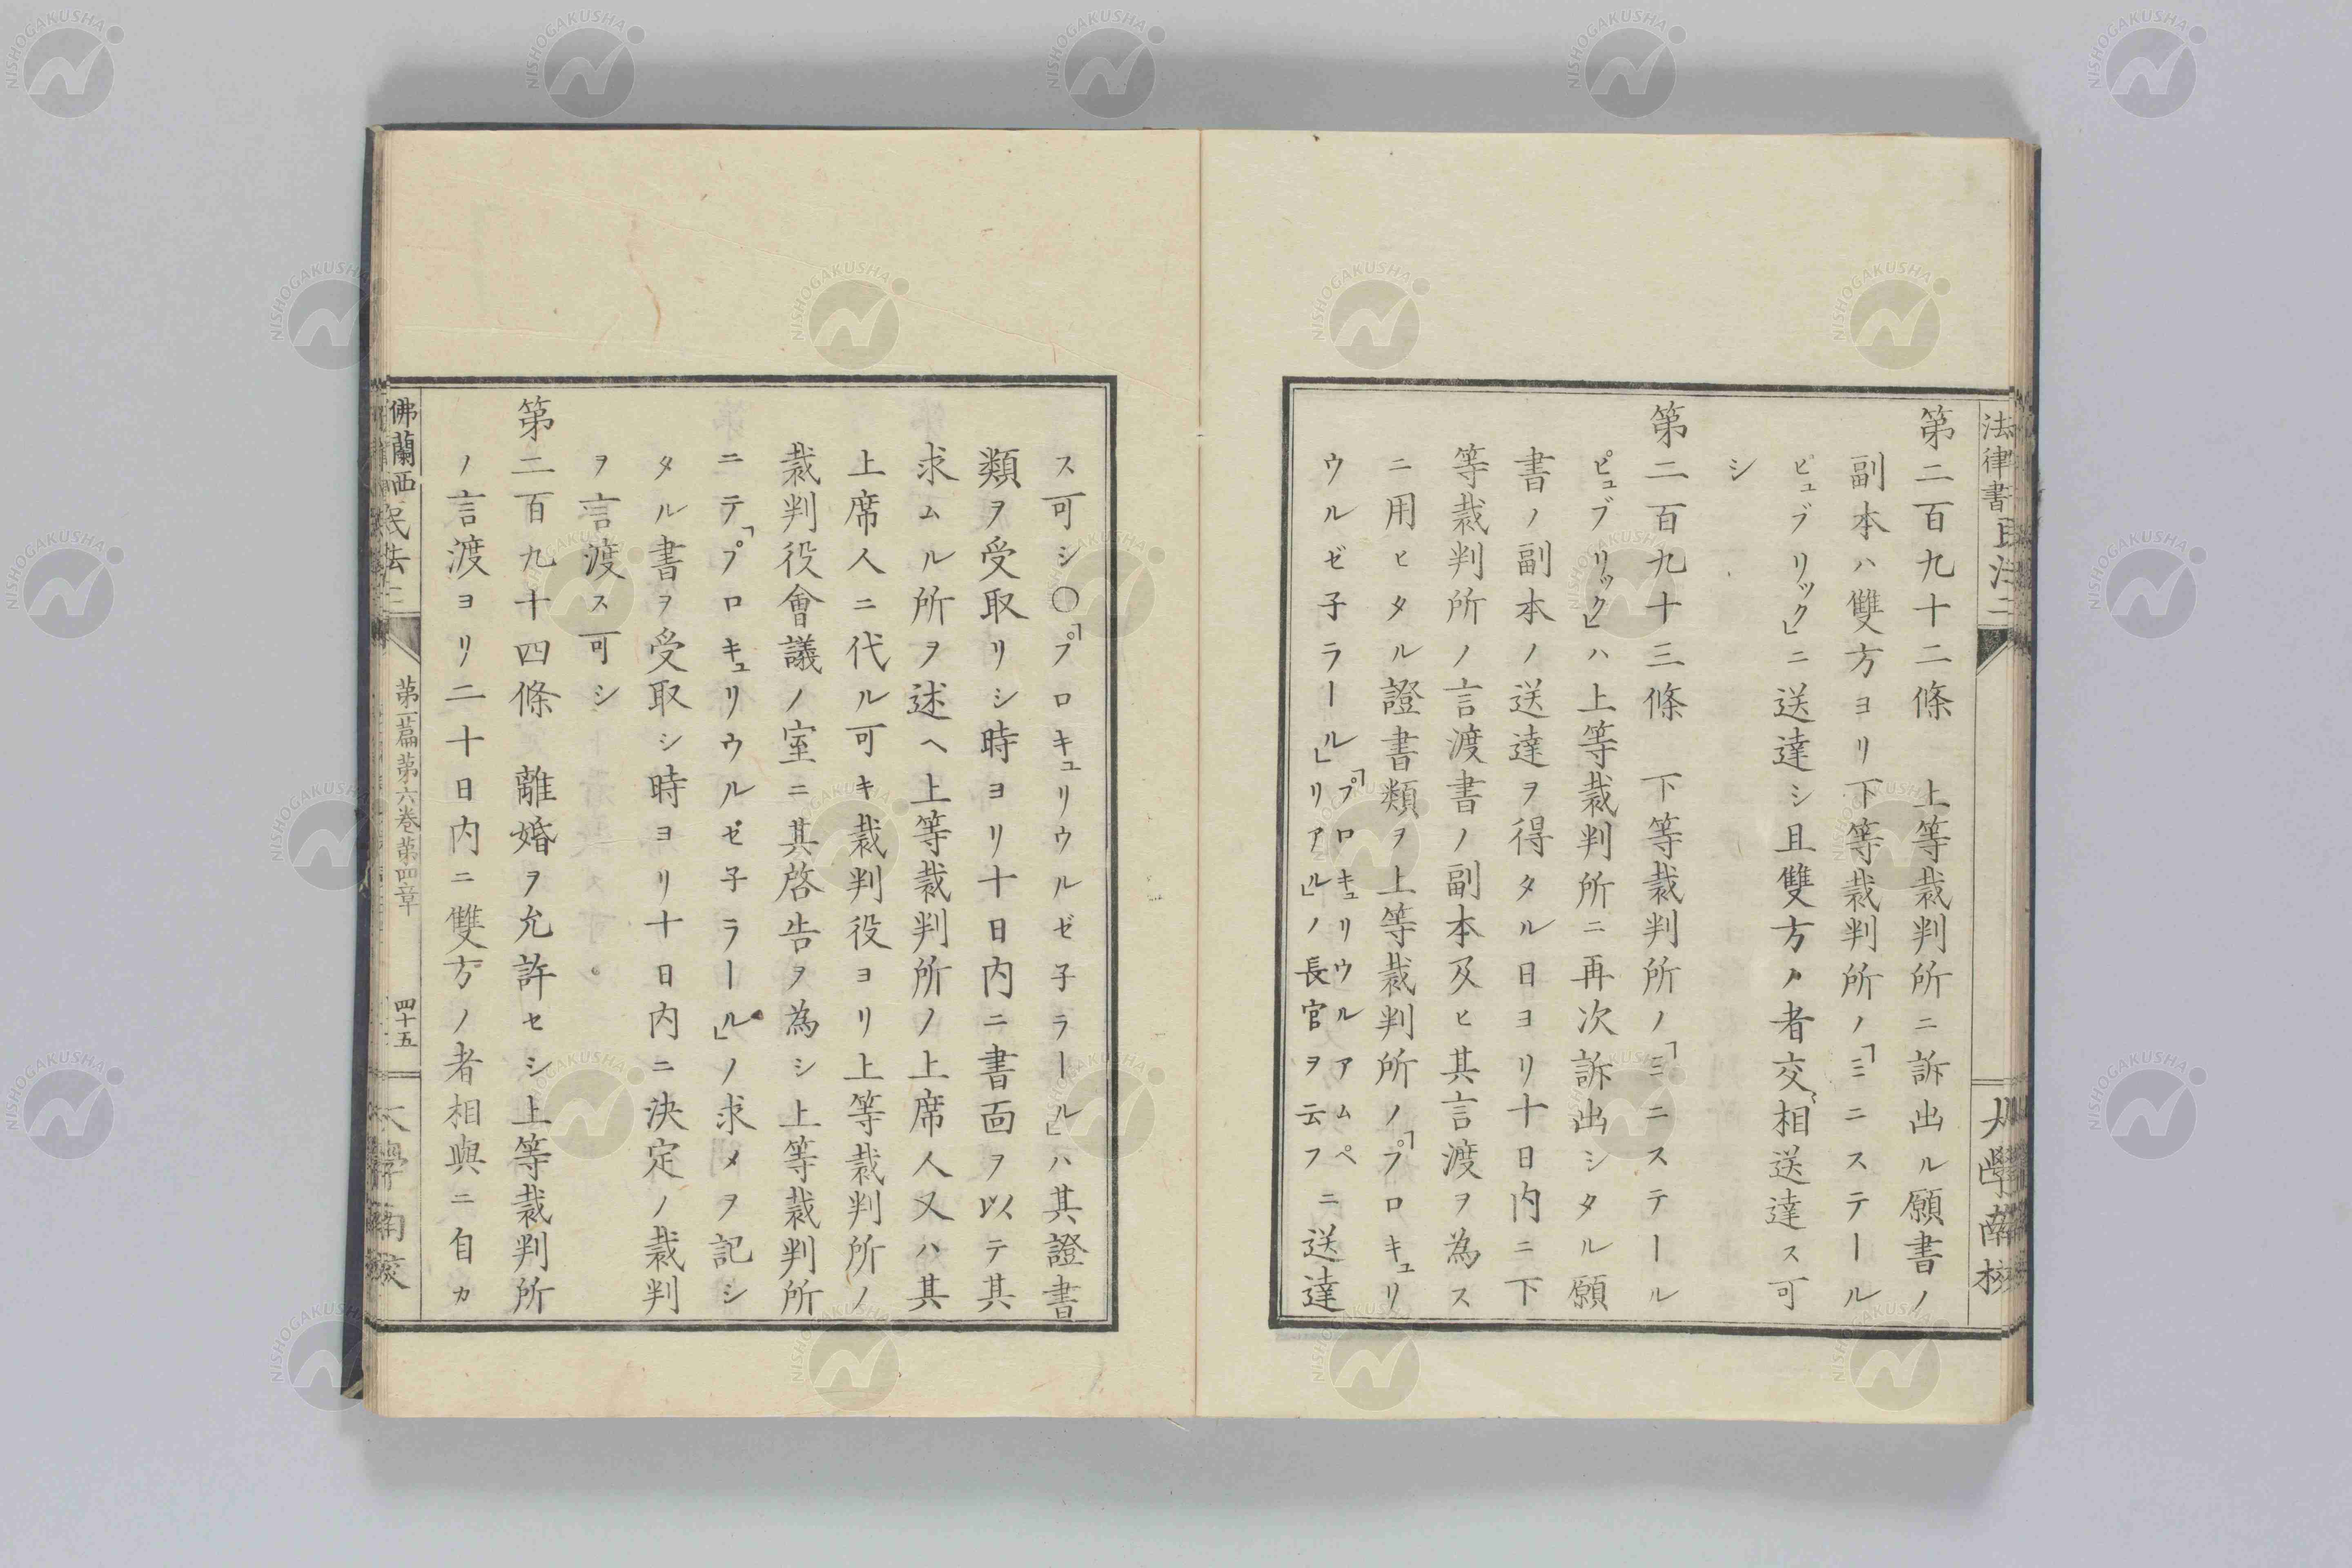 法律書 民法二 大學南校
第二百九十二條 上等裁判所ニ訴出ル願書ノ
副本ハ雙方ヨリ下等裁判所ノ「ミニステール
ピュブリック」ニ送達シ且雙方ノ者交〻相送達ス可
シ
第二百九十三條 下等裁判所ノ「ミニステール
ピュブリック」ハ上等裁判所ニ再次訴出シタル願
書ノ副本ノ送達ヲ得タル日ヨリ十日內ニ下
等裁判所ノ言渡書ノ副本及ヒ其言渡ヲ為ス
ニ用ヒタル證書類ヲ上等裁判所ノ「プロキュリ
ウルゼ子ラール」「プロキュリウルアムペリアル」ノ長官ヲ云フニ送達
ス可シ〇「プロキュリウルゼ子ラール」ハ其證書
類ヲ受取リシ時ヨリ十日內ニ書面ヲ以テ其
求ムル所ヲ述ヘ上等裁判所ノ上席人又ハ其
上席人ニ代ル可キ裁判役ヨリ上等裁判所ノ
裁判役會議ノ室ニ其啓告ヲ為シ上等裁判所
ニテ「プロキュリウルゼ子ラール」ノ求メヲ記シ
タル書ヲ受取シ時ヨリ十日內ニ決定ノ裁判
ヲ言渡ス可シ
第二百九十四條 離婚ヲ允許セシ上等裁判所
ノ言渡ヨリ二十日內ニ雙方ノ者相與ニ自カ
佛蘭西 民法二 第一篇第六卷第四章 四十五 大學南校
NISHOGAKUSHA